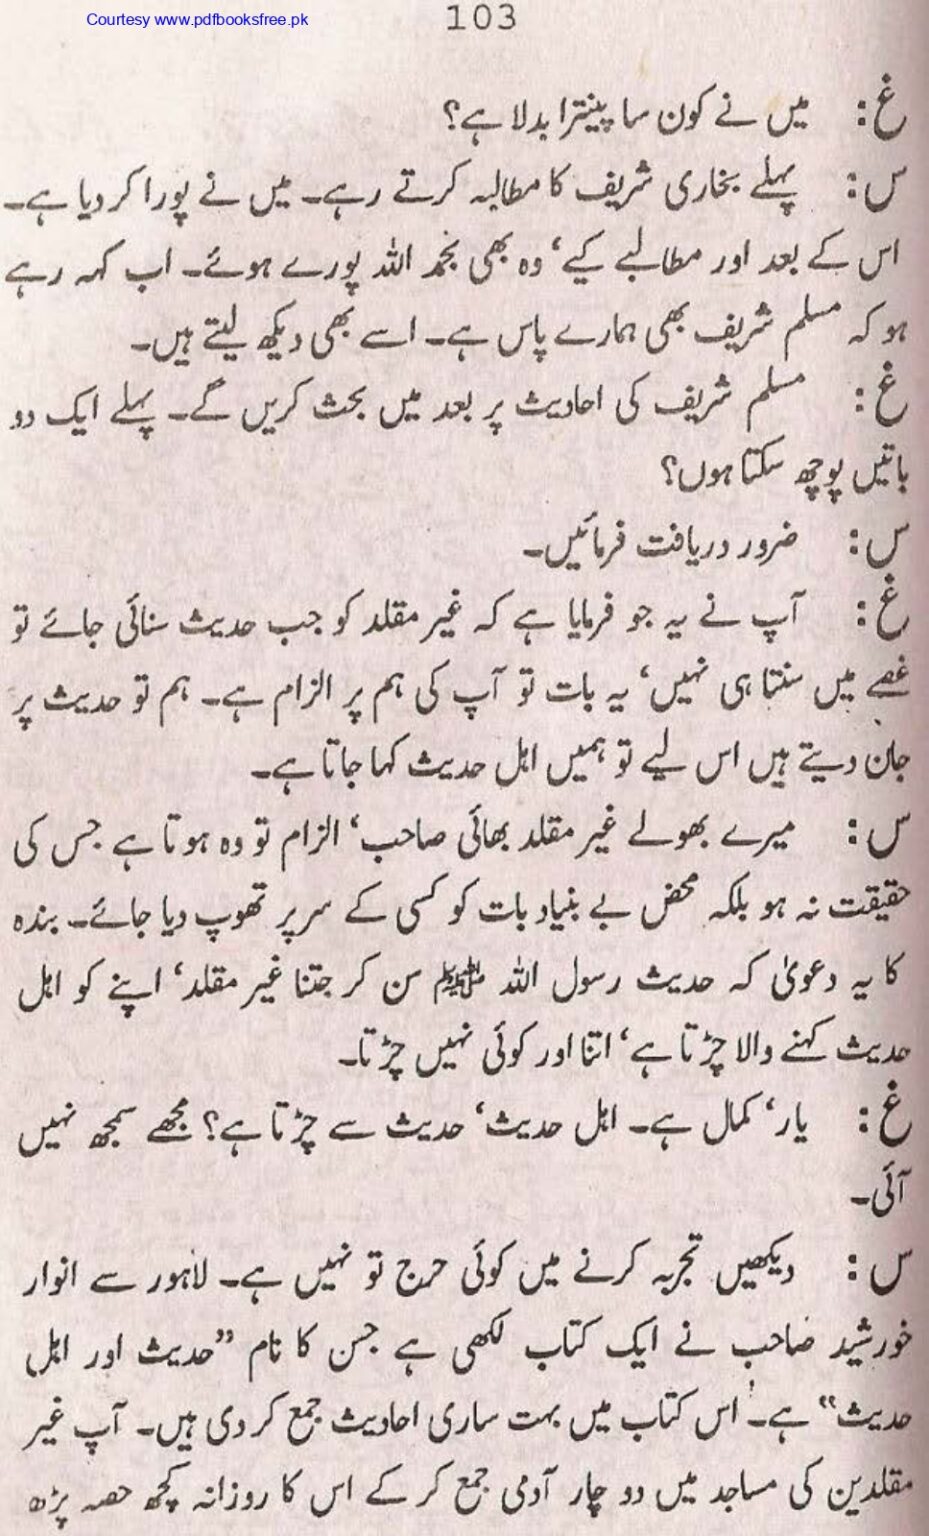 Courtesy www.pdfbooksfree.pk
103
غ: میں نے کون سا پینترا بدلا ہے؟
س: پہلے بخاری شریف کا مطالبہ کرتے رہے۔ میں نے پورا کر دیا ہے۔
اس کے بعد اور مطالبے کیے‘ وہ بھی بحمد اللہ پورے ہوئے۔ اب کہہ رہے
ہو کہ مسلم شریف بھی ہمارے پاس ہے۔ اسے بھی دیکھ لیتے ہیں۔
غ: مسلم شریف کی احادیث پر بعد میں بحث کریں گے۔ پہلے ایک دو
باتیں پوچھ سکتا ہوں؟
س: ضرور دریافت فرمائیں۔
غ: آپ نے یہ جو فرمایا ہے کہ غیر مقلد کو جب حدیث سنائی جائے تو
غصے میں سنتا ہی نہیں‘ یہ بات تو آپ کی ہم پر الزام ہے۔ ہم تو حدیث پر
جان دیتے ہیں اس لیے تو ہمیں اہل حدیث کہا جاتا ہے۔
س: میرے بھولے غیر مقلد بھائی صاحب‘ الزام تو وہ ہوتا ہے جس کی
حقیقت نہ ہو بلکہ محض بے بنیاد بات کو کسی کے سر پر تھوپ دیا جائے۔ بندہ
کا یہ دعویٰ کہ حدیث رسول اللہ ﷺ سن کر جتنا غیر مقلد‘ اپنے کو اہل
حدیث کہنے والا چڑتا ہے‘ اتنا اور کوئی نہیں چڑتا۔
غ: یار‘ کمال ہے۔ اہل حدیث‘ حدیث سے چڑتا ہے؟ مجھے سمجھ نہیں
آئی۔
س: دیکھیں تجربہ کرنے میں کوئی حرج تو نہیں ہے۔ لاہور سے انوار
خورشید صاحب نے ایک کتاب لکھی ہے جس کا نام ”حدیث اور اہل
حدیث“ ہے۔ اس کتاب میں بہت ساری احادیث جمع کر دی ہیں۔ آپ غیر
مقلدین کی مساجد میں دو چار آدمی جمع کر کے اس کا روزانہ کچھ حصہ پڑھ